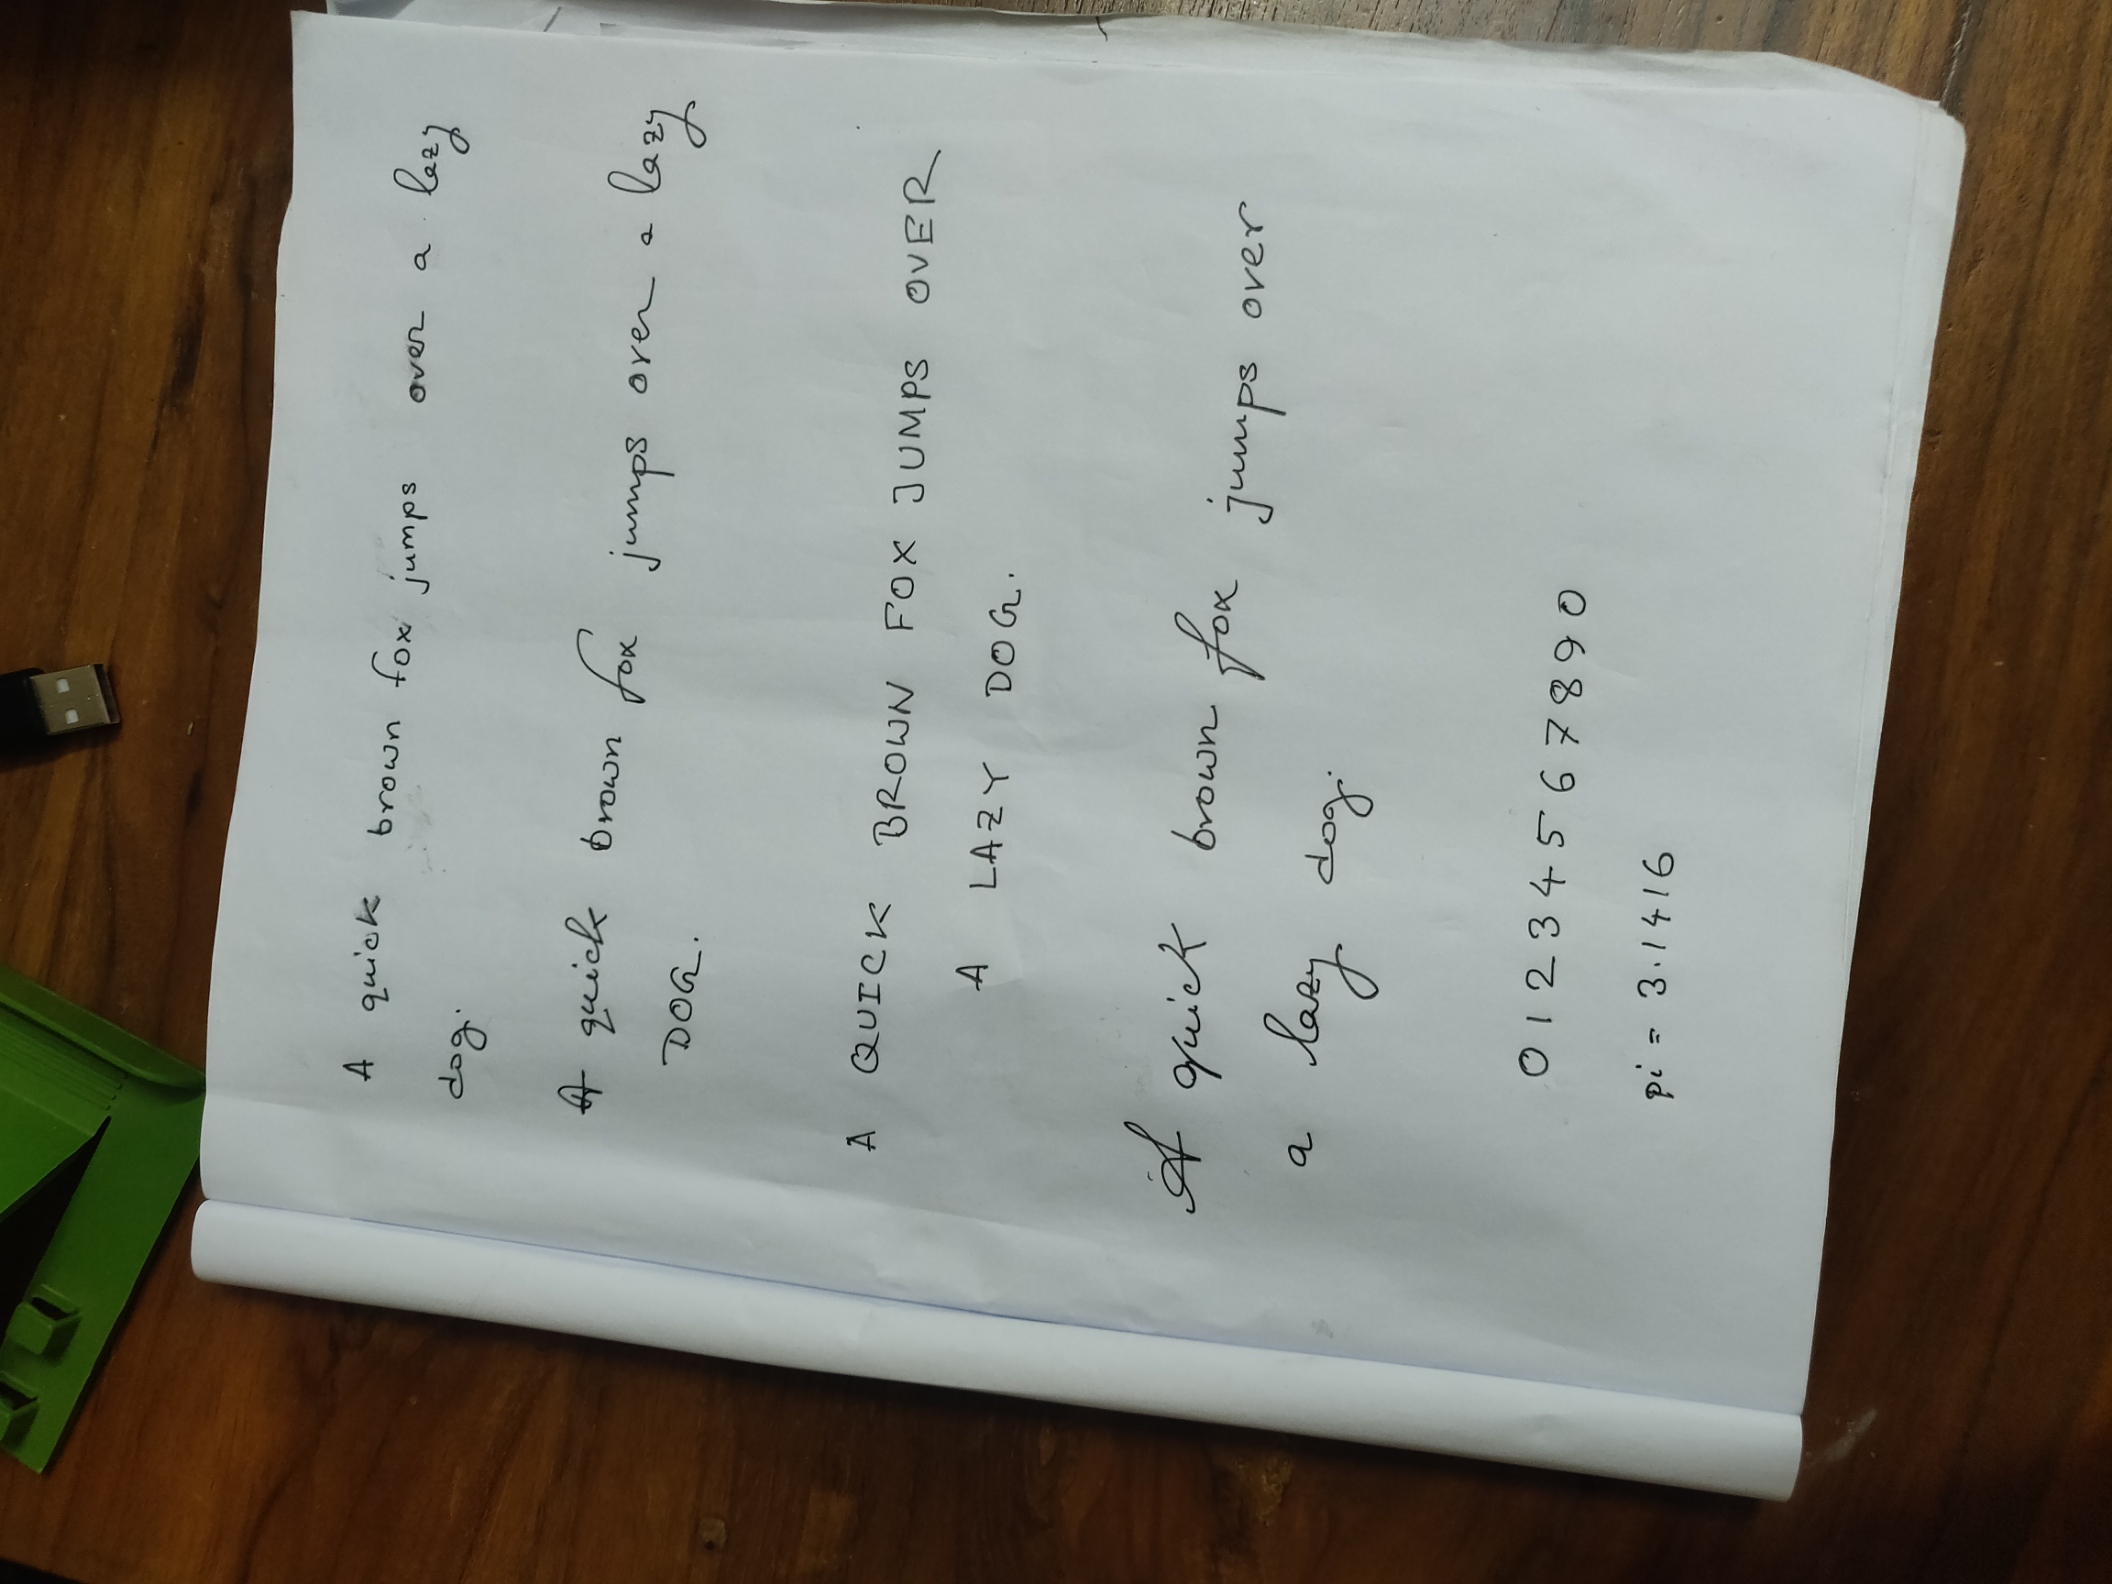 A quick brown fox jumps over a lazy
dog.
A quick brown fox jumps over a lazy
DOG.
A QUICK BROWN FOX JUMPS OVER
A LAZY DOG.
A quick brown fox jumps over
a lazy dog.
0 1 2 3 4 5 6 7 8 9 0
pi = 3.1416